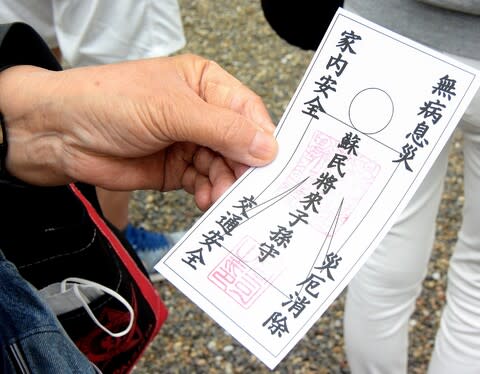 無病息災
家内安全
蘇民将来子孫守
災厄消除
交通安全